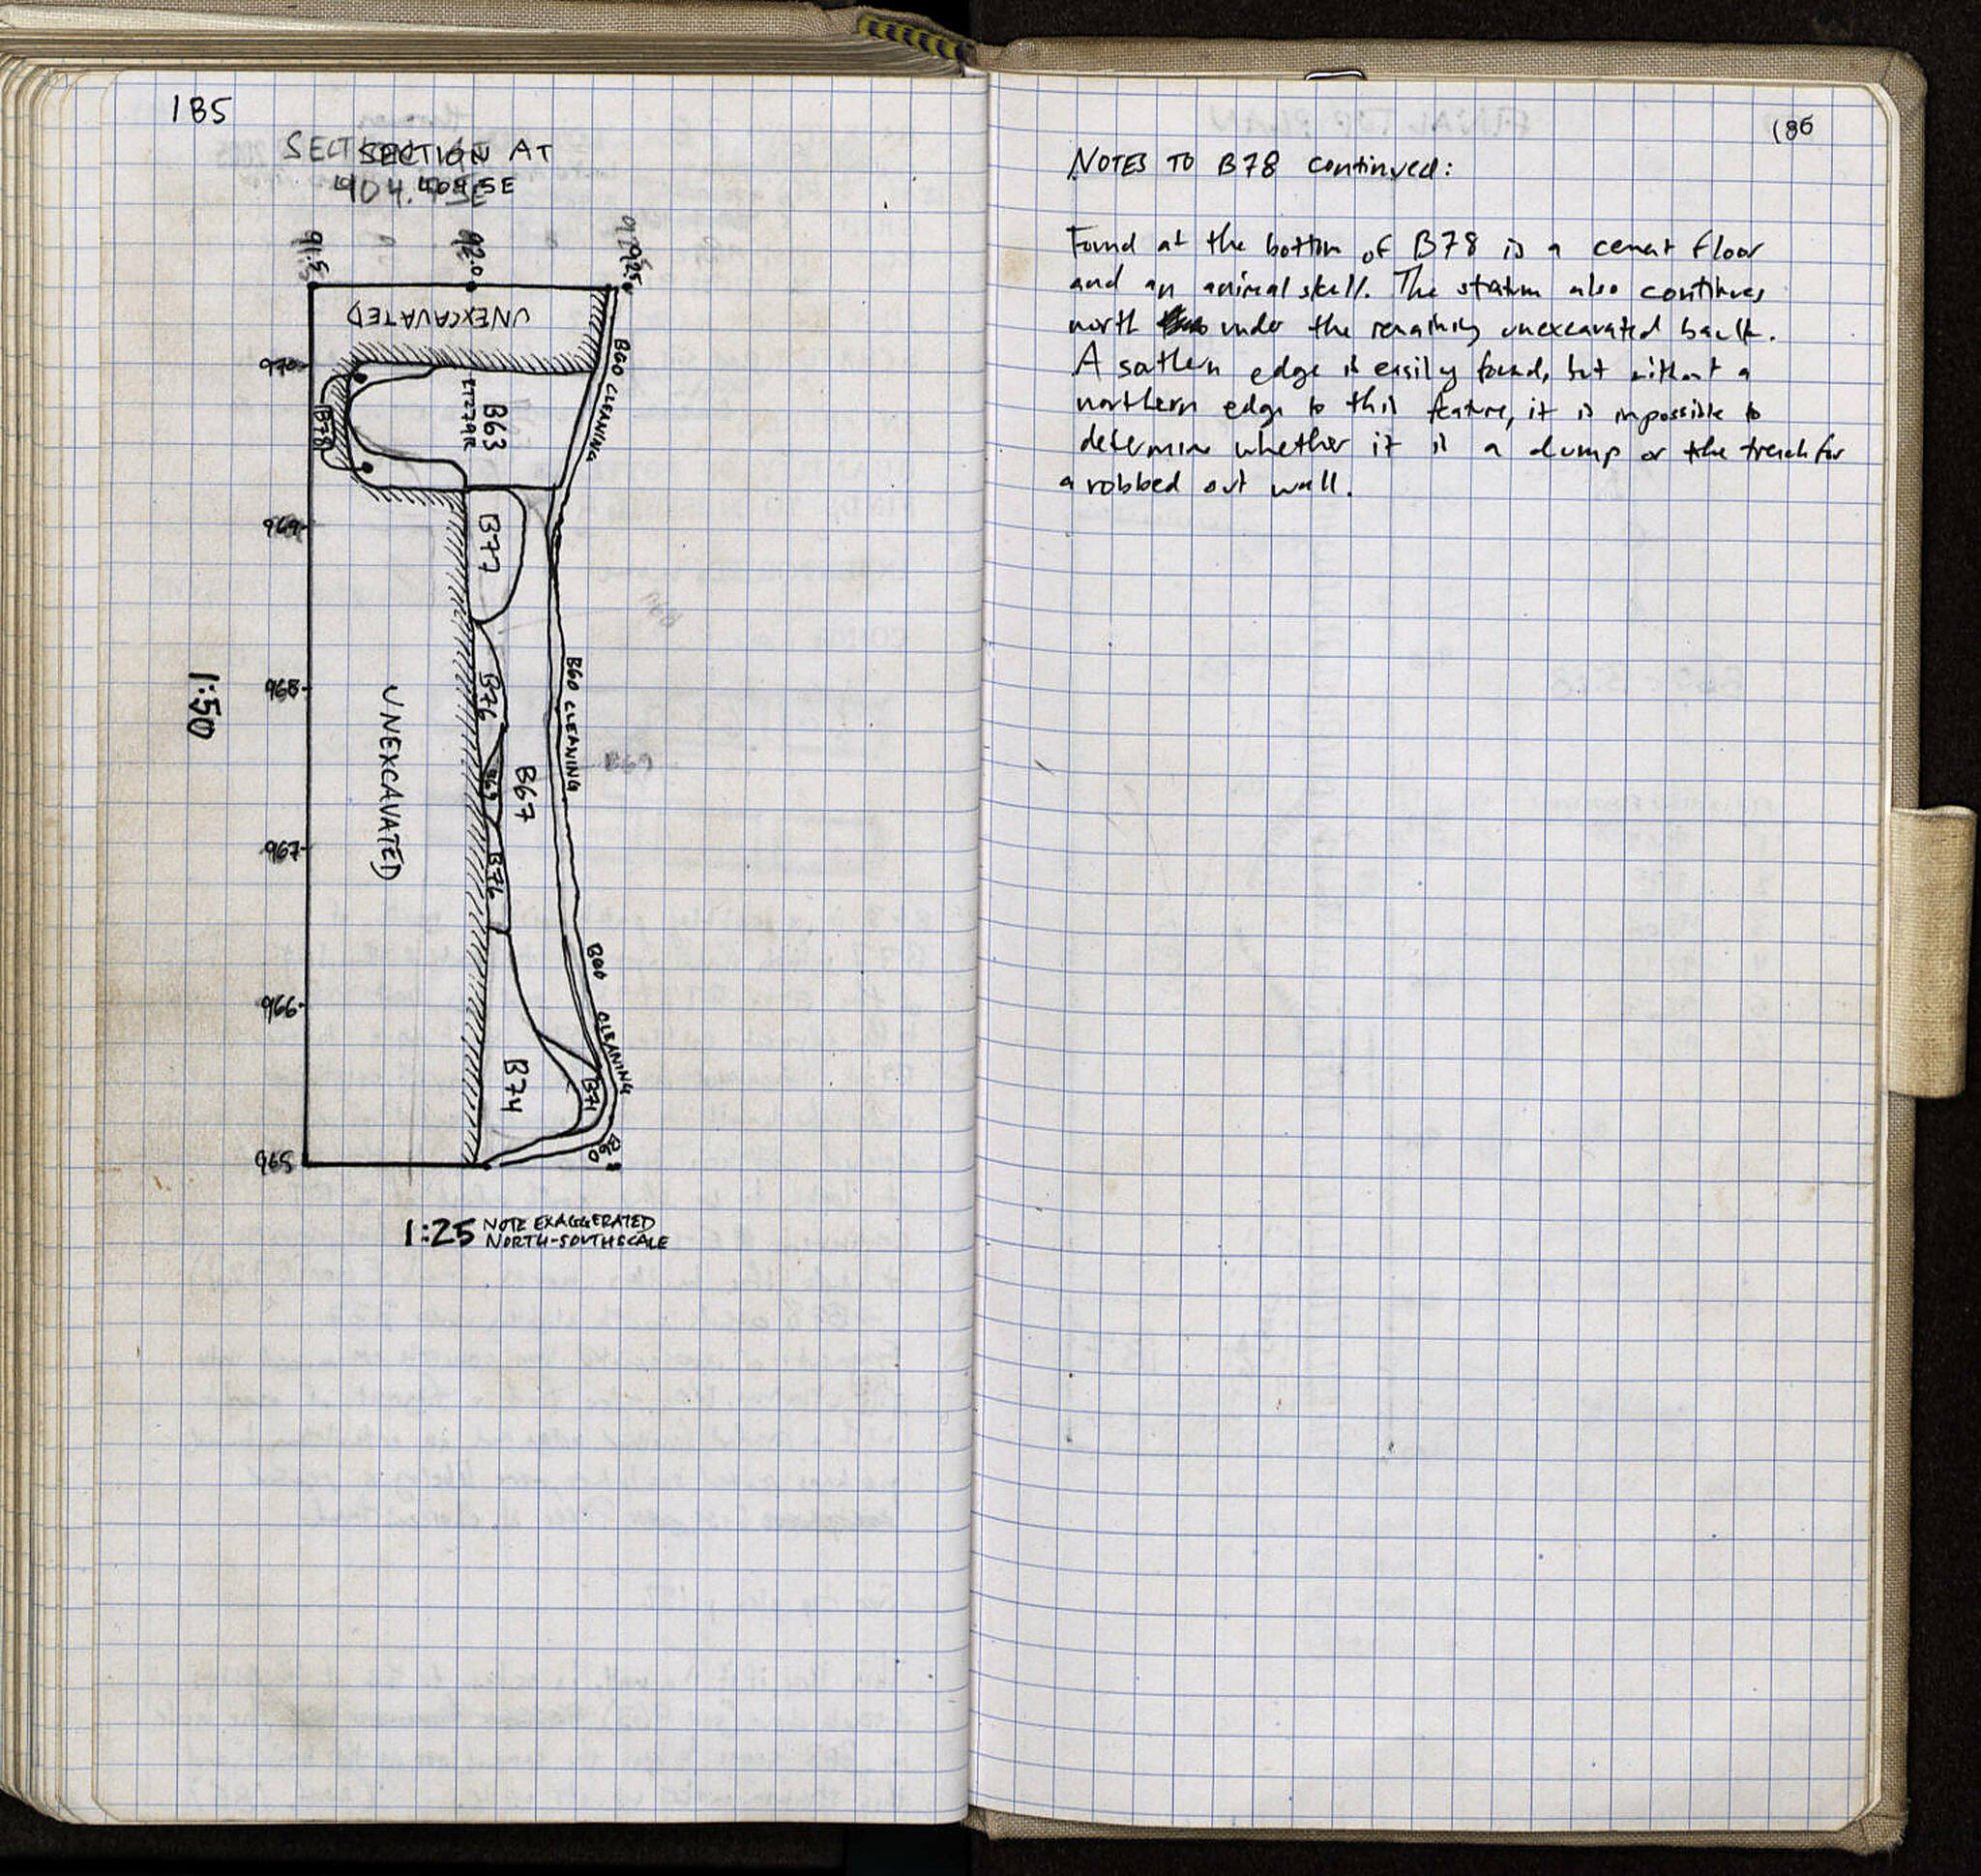 185
SECTION AT
404.5E
91.5
92.0
92.5
UNEXCAVATED
B60 CLEANING
970
B63
B78
969
B77
968
B76
B60 CLEANING
1:50
UNEXCAVATED
B67
B69
967
B76
B60 CLEANING
966
B74
B71
B60
965
1:25 NOTE EXAGGERATED
NORTH-SOUTH SCALE
186
NOTES TO B78 continued:
Found at the bottom of B78 is a cement floor
and an animal skull. The stratum also continues
north under the remaining unexcavated baulk.
A southern edge is easily found, but without a
northern edge to this feature, it is impossible to
determine whether it is a dump or the trench for
a robbed out wall.